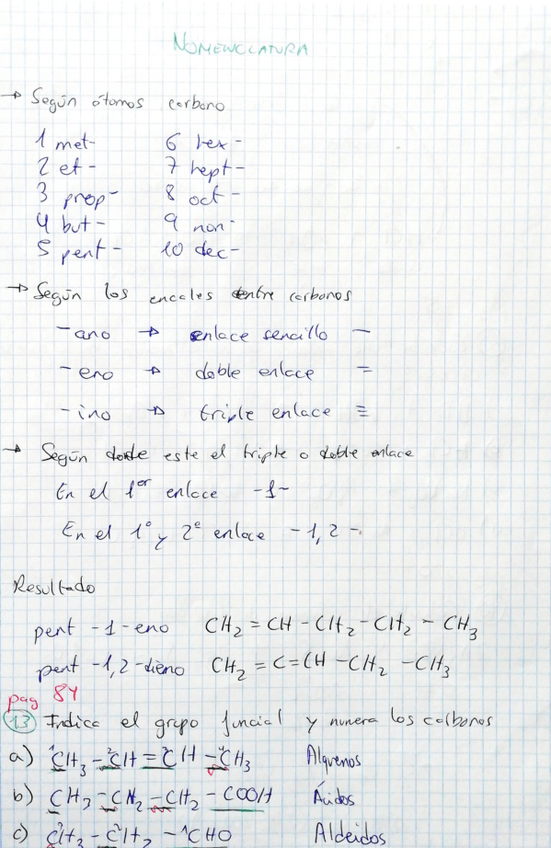 NOMENCLATURA
→ Según átomos carbono
1 met- 6 hex-
2 et- 7 hept-
3 prop- 8 oct-
4 but- 9 non-
5 pent- 10 dec-
→ Según los encales entre carbonos
-ano → enlace sencillo —
-eno → doble enlace =
-ino → triple enlace ≡
→ Según donde este el triple o doble enlace
En el 1er enlace -1-
En el 1º y 2º enlace -1,2-
Resultado
pent-1-eno CH₂=CH-CH₂-CH₂-CH₃
pent-1,2-dieno CH₂=C=CH-CH₂-CH₃
pag 84
13 Indica el grupo funcial y numera los carbonos
a) ¹CH₃-²CH=³CH-⁴CH₃ Alquenos
b) CH₃-CH₂-CH₂-COOH Ácidos
c) ³CH₃-²CH₂-¹CHO Aldeidos